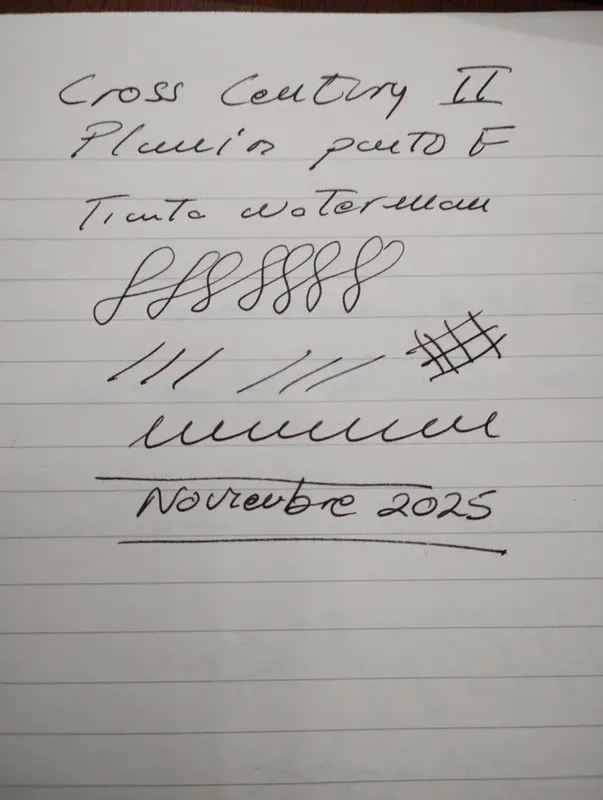 Cross Century II
Plumin punto F
Tinta Waterman
Noviembre 2025